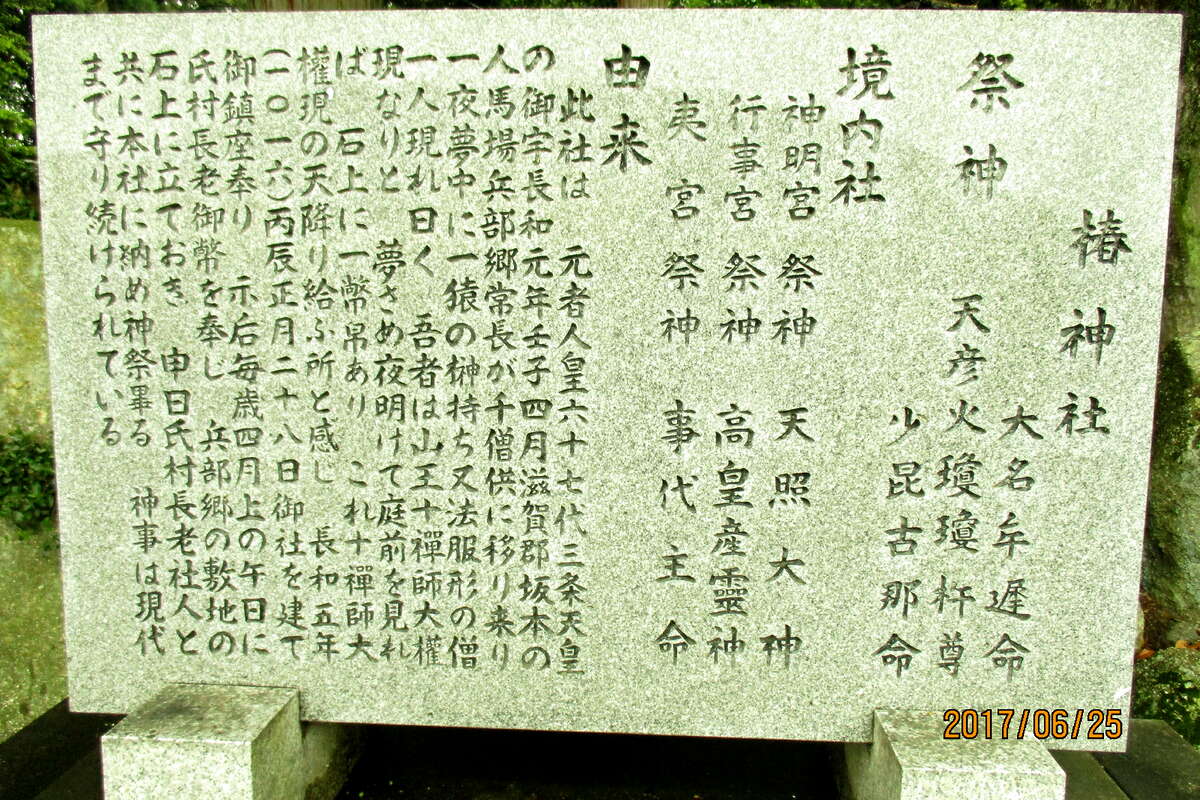 椿神社
祭神 大名牟遅命
天彦火瓊瓊杵尊
少昆古那命
境内社
神明宮 祭神 天照大神
行事宮 祭神 高皇産靈神
夷宮 祭神 事代主命
由来
此社は 元者人皇六十七代三条天皇
の御宇長和元年壬子四月滋賀郡坂本の
人馬場兵部郷常長が千僧供に移り来り
一夜夢中に一猿の榊持ち又法服形の僧
一人現れ曰く 吾者は山王十禪師大權
現なりと 夢さめ夜明けて庭前を見れ
ば 石上に一幣帛あり これ十禪師大
權現の天降り給ふ所と感じ 長和五年
(一〇一六)丙辰正月二十八日御社を建て
御鎮座奉り 示后毎歳四月上の午日に
氏村長老御幣を奉じ 兵部郷の敷地の
石上に立ておき 申日氏村長老社人と
共に本社に納め神祭畢る 神事は現代
まで守り続けられている
2017/06/25